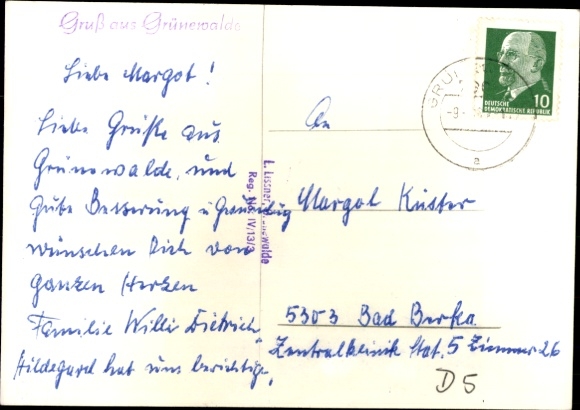 Gruß aus Grünewalde
Liebe Margot!
Liebe Grüße aus
Grünewalde, und
Gute Besserung u
wünschen Dich von
ganzen Herzen
Familie Willi Dietrich
Hildegard hat uns berichtigt.
L. Lissner, Grünewalde
Reg. IV/13/3
An
Margot Küster
5303 Bad Berka
Zentralklinik Stat. 5 Zimmer 26
D5
DEUTSCHE
DEMOKRATISCHE REPUBLIK
10
GRÜ
-9.
a